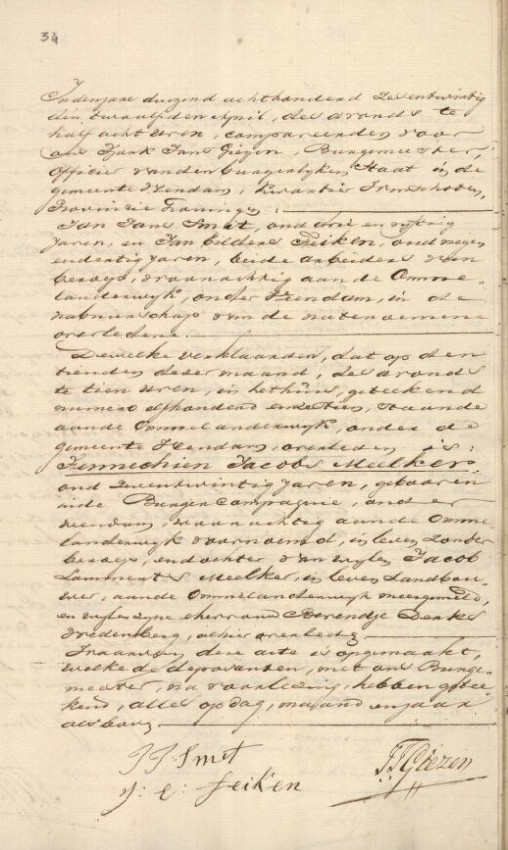 34
In den jare duizend achthonderd zevenentwintig
den twaalfden april, des avonds te
half acht uren, compareerden voor
ons Tjark Jans Giezen, Burgemeester,
Officier van den burgerlyken Staat in de
gemeente Veendam,
Provincie Groningen:
Jan Jans Smit, oud drie en vyftig
jaren, en Jan Eelders Feiken, oud negen
endertig jaren, beide arbeiders van
beroep, woonachtig aan de Omme-
landerwyk, onder Veendam, in de
nabuurschap van de natenoemene
overledene.
Dewelke verklaarden, dat op den
tienden dezer maand, des avonds
te tien uren, in het huis, geteekend
numero elfhonderd en zestien, staande
aan de Ommelanderwyk, onder de
gemeente Veendam, overleden is:
Jennechien Jacobs Meelker,
oud zeventwintig jaren, geboren
in de Burger Compagnie, onder
Veendam, woonachtig aan de Omme-
landerwyk voornoemd, in leven zonder
beroep, en dochter van wylen Jacob
Lammerts Meelker, in leven Landbou-
wer, aan de Ommelanderwyk meergemeld,
en wylen zyne ehevrouw Berendje Derks
Vredenberg, alhier overleden.
Waarvan deze acte is opgemaakt,
welke de deposanten, met ons Burge-
meester, na voorlezing, hebben getee-
kend, alles op dag, maand en jaar
als boven.
J J Smet
J: E: feiken
TJGiezen